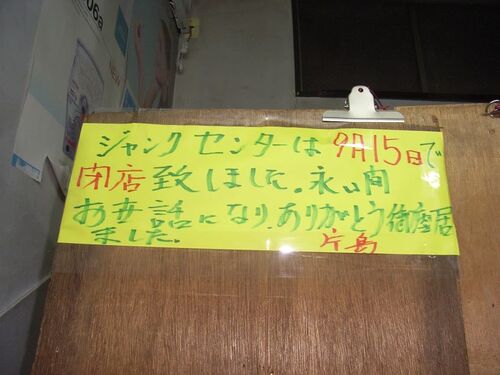 ジャンクセンターは9月15日で
閉店致しました。永い間
お世話になり、ありがとう御座居
ました。 片島